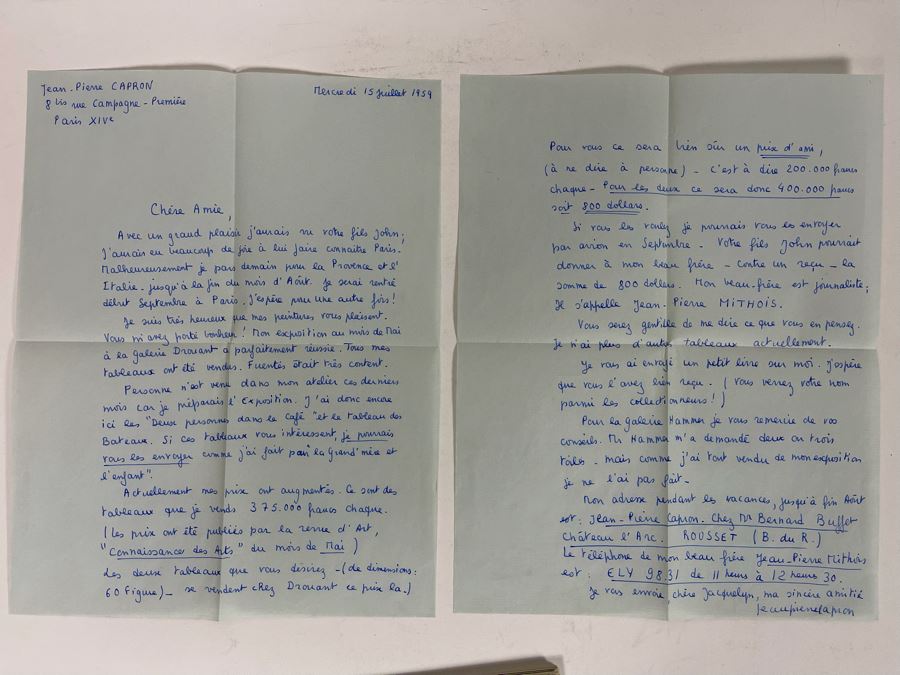 Jean-Pierre CAPRON
8 bis rue Campagne-Première
Paris XIVe
Mercredi 15 juillet 1959
Chère Amie,
Avec un grand plaisir j'aurais vu votre fils John.
J'aurais eu beaucoup de joie à lui faire connaître Paris!
Malheureusement je pars demain pour la Provence et l'
Italie - jusqu'à la fin du mois d'Août. Je serai rentré
début Septembre à Paris. J'espère pour une autre fois!
Je suis très heureux que mes peintures vous plaisent.
Vous m'avez porté bonheur! Mon exposition au mois de Mai
à la galerie Drouant a parfaitement réussie. Tous mes
tableaux ont été vendus. Fuentès était très content.
Personne n'est venu dans mon atelier ces derniers
mois car je préparais l'Exposition. J'ai donc encore
ici les "Deux personnes dans le café" et le tableau des
Bateaux. Si ces tableaux vous intéressent, je pourrais
vous les envoyer comme j'ai fait pour la Grand'mère et
l'enfant".
Actuellement mes prix ont augmentés. Ce sont des
tableaux que je vends 375.000 francs chaque.
(les prix ont été publiés par la revue d'Art,
"Connaissance des Arts" du mois de Mai)
Les deux tableaux que vous désirez - (de dimensions:
60 Figure) - se vendent chez Drouant ce prix là.)
Pour vous ce sera bien sûr un prix d'ami,
(à ne dire à personne) - c'est à dire 200.000 francs
chaque - Pour les deux ce sera donc 400.000 francs
soit 800 dollars.
Si vous les voulez je pourrais vous les envoyer
par avion en Septembre - Votre fils John pourrait
donner à mon beau frère - contre un reçu - la
somme de 800 dollars. Mon beau-frère est journaliste;
Il s'appelle Jean-Pierre MITHOIS.
Vous serez gentille de me dire ce que vous en pensez.
Je n'ai plus d'autres tableaux actuellement.
Je vous ai envoyé un petit livre sur moi. J'espère
que vous l'avez bien reçu. (Vous verrez votre nom
parmi les collectionneurs!)
Pour la Galerie Hammer je vous remercie de vos
conseils. Mr Hammer m'a demandé deux ou trois
toiles - mais comme j'ai tout vendu de mon exposition
je ne l'ai pas fait -
Mon adresse pendant les vacances, jusqu'à fin Août
est: Jean-Pierre Capron. Chez Mr Bernard Buffet
Château l'Arc. ROUSSET (B. du R.)
Le téléphone de mon beau frère Jean-Pierre Mithois
est: ELY 98.31 de 11 heures à 12 heures 30.
Je vous envoie, chère Jacquelyn, ma sincère amitié
jeanpierrecapron